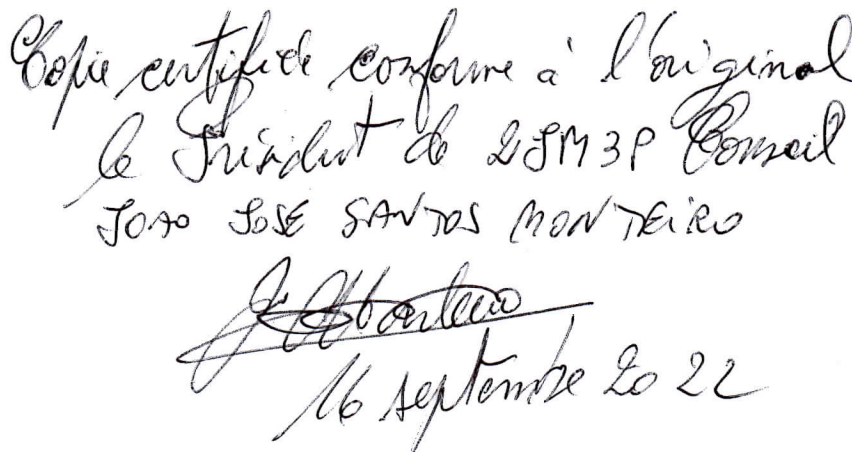 Copie certifiée conforme à l'original
le Président de 2JM3P Conseil
JOAO JOSE SANTOS MONTEIRO
16 septembre 2022